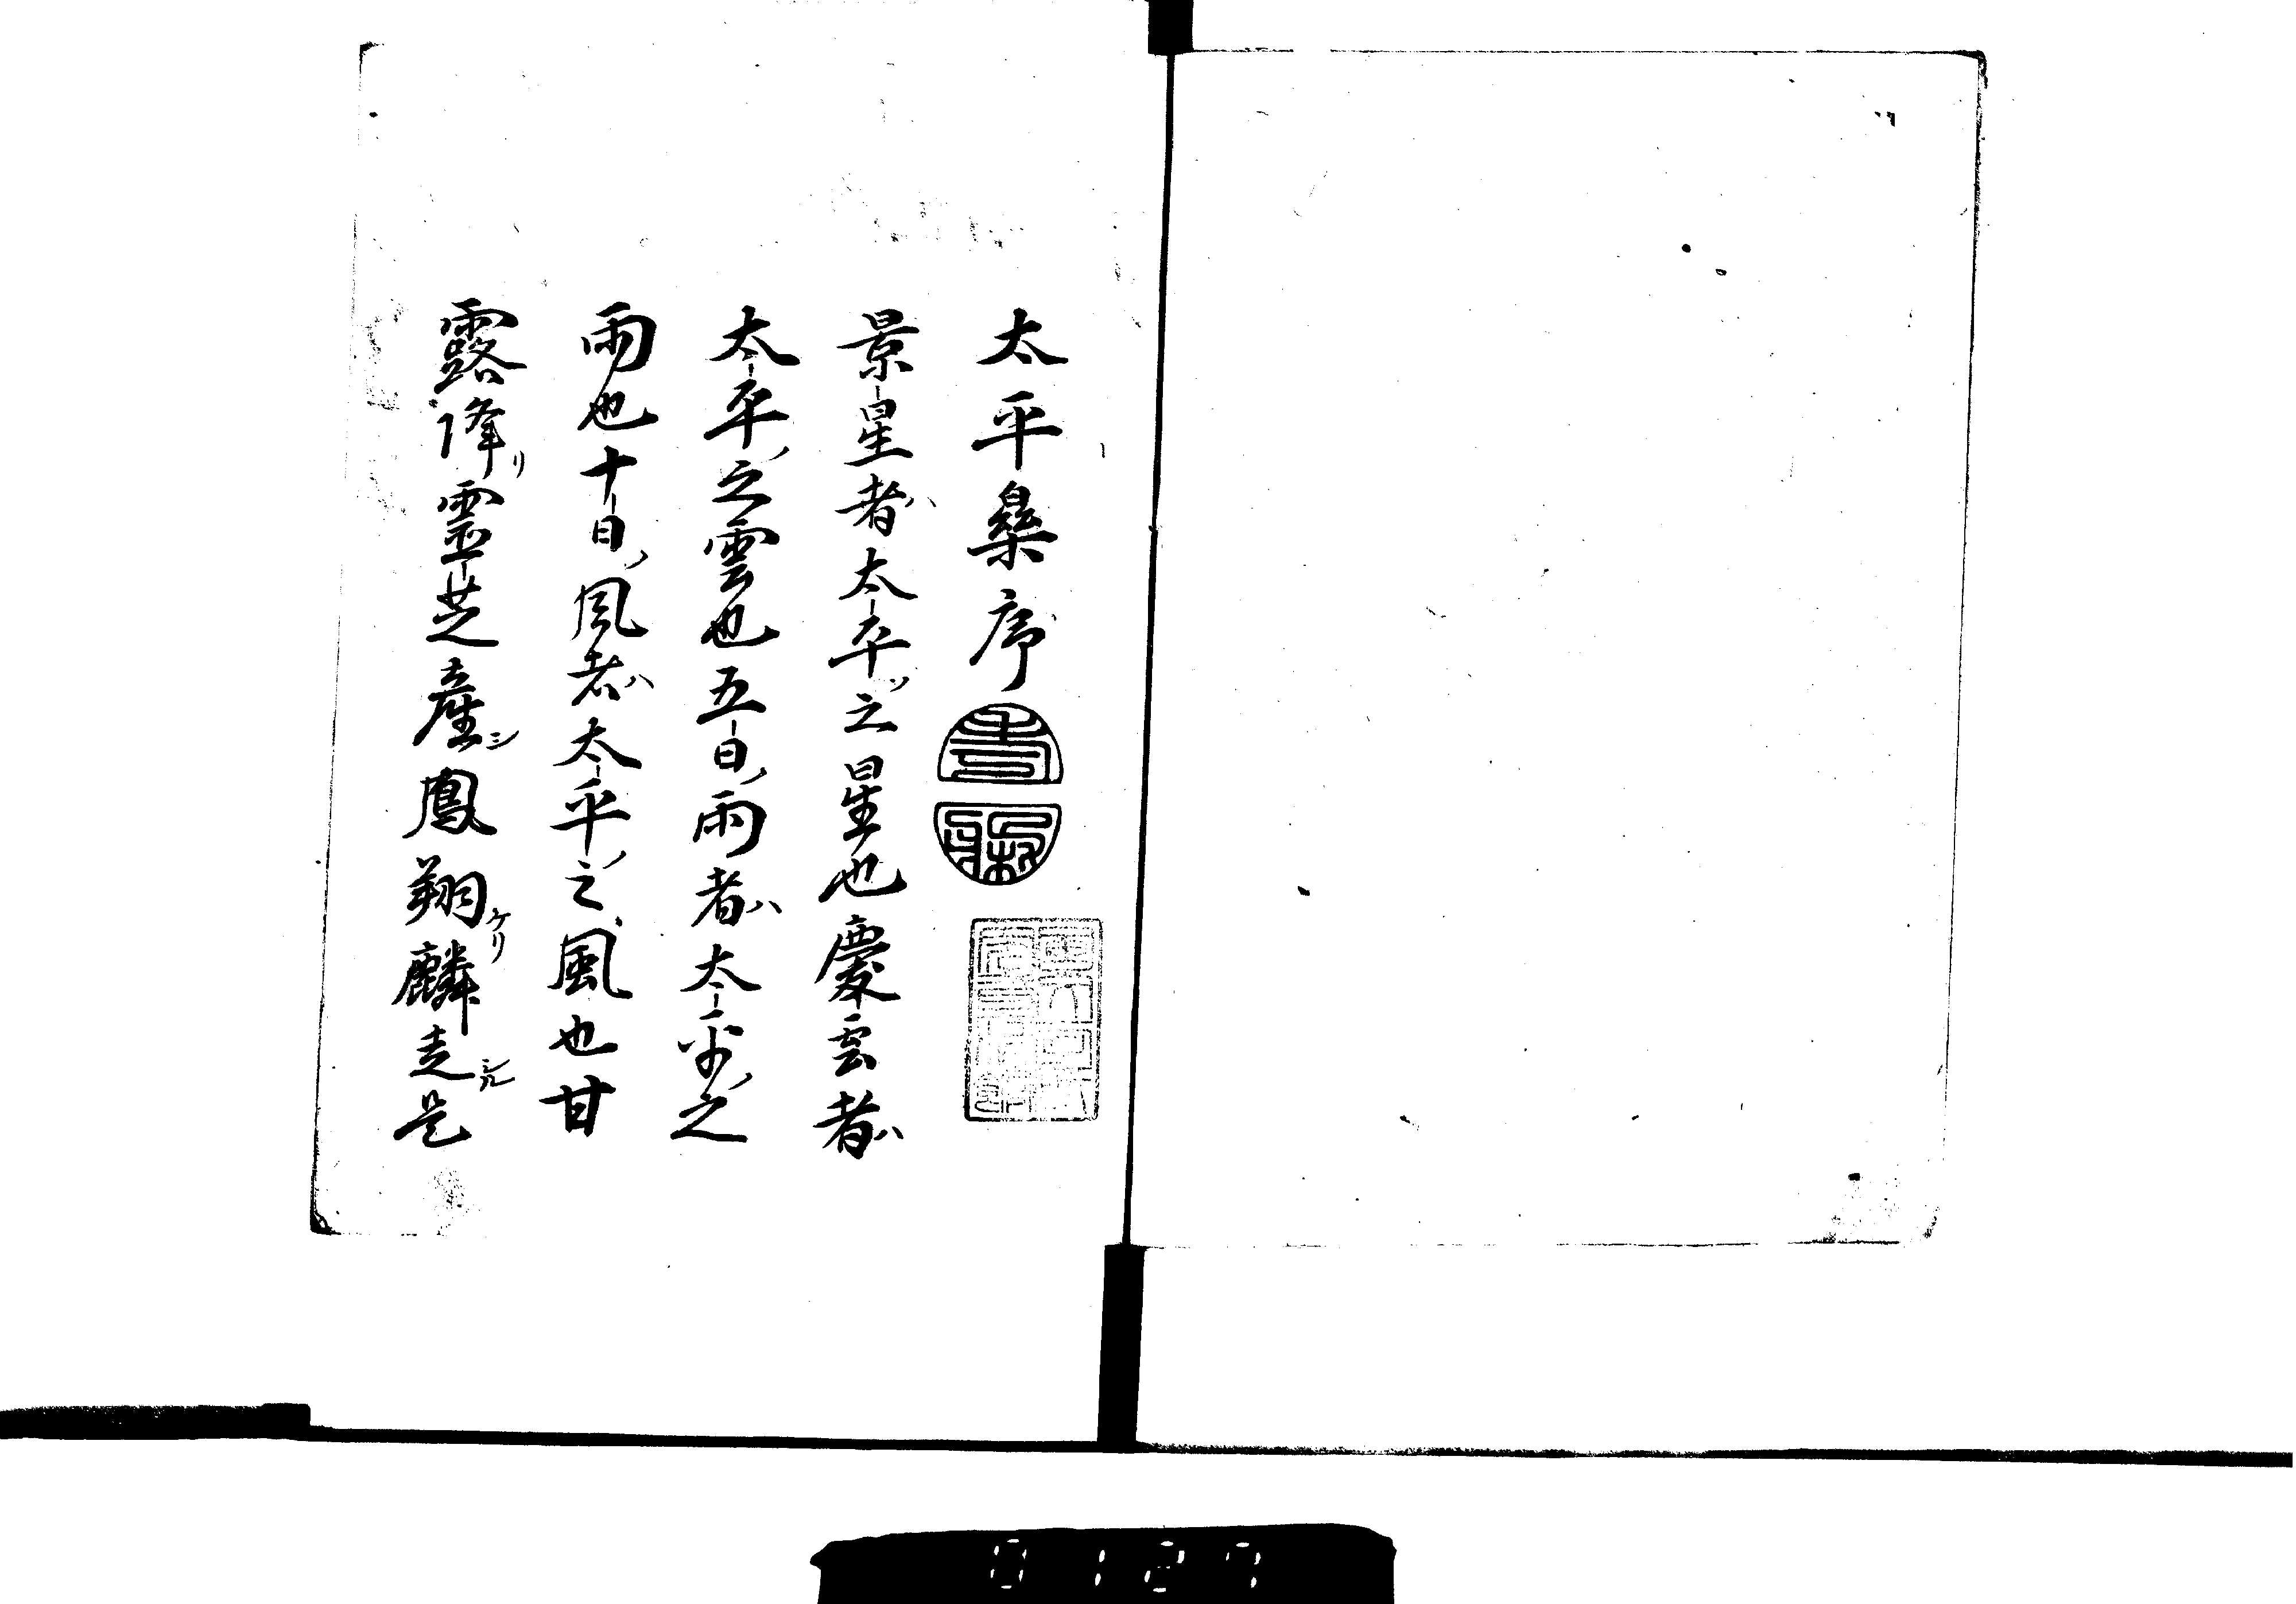 太平樂序
景星者ハ太平ノ之星也慶雲者ハ
太平ノ之雲也五日ノ雨者ハ太平ノ之
雨也十日ノ風者ハ太平ノ之風也甘
露降リ靈芝産シ鳳翔ケリ麟走シル是
0127